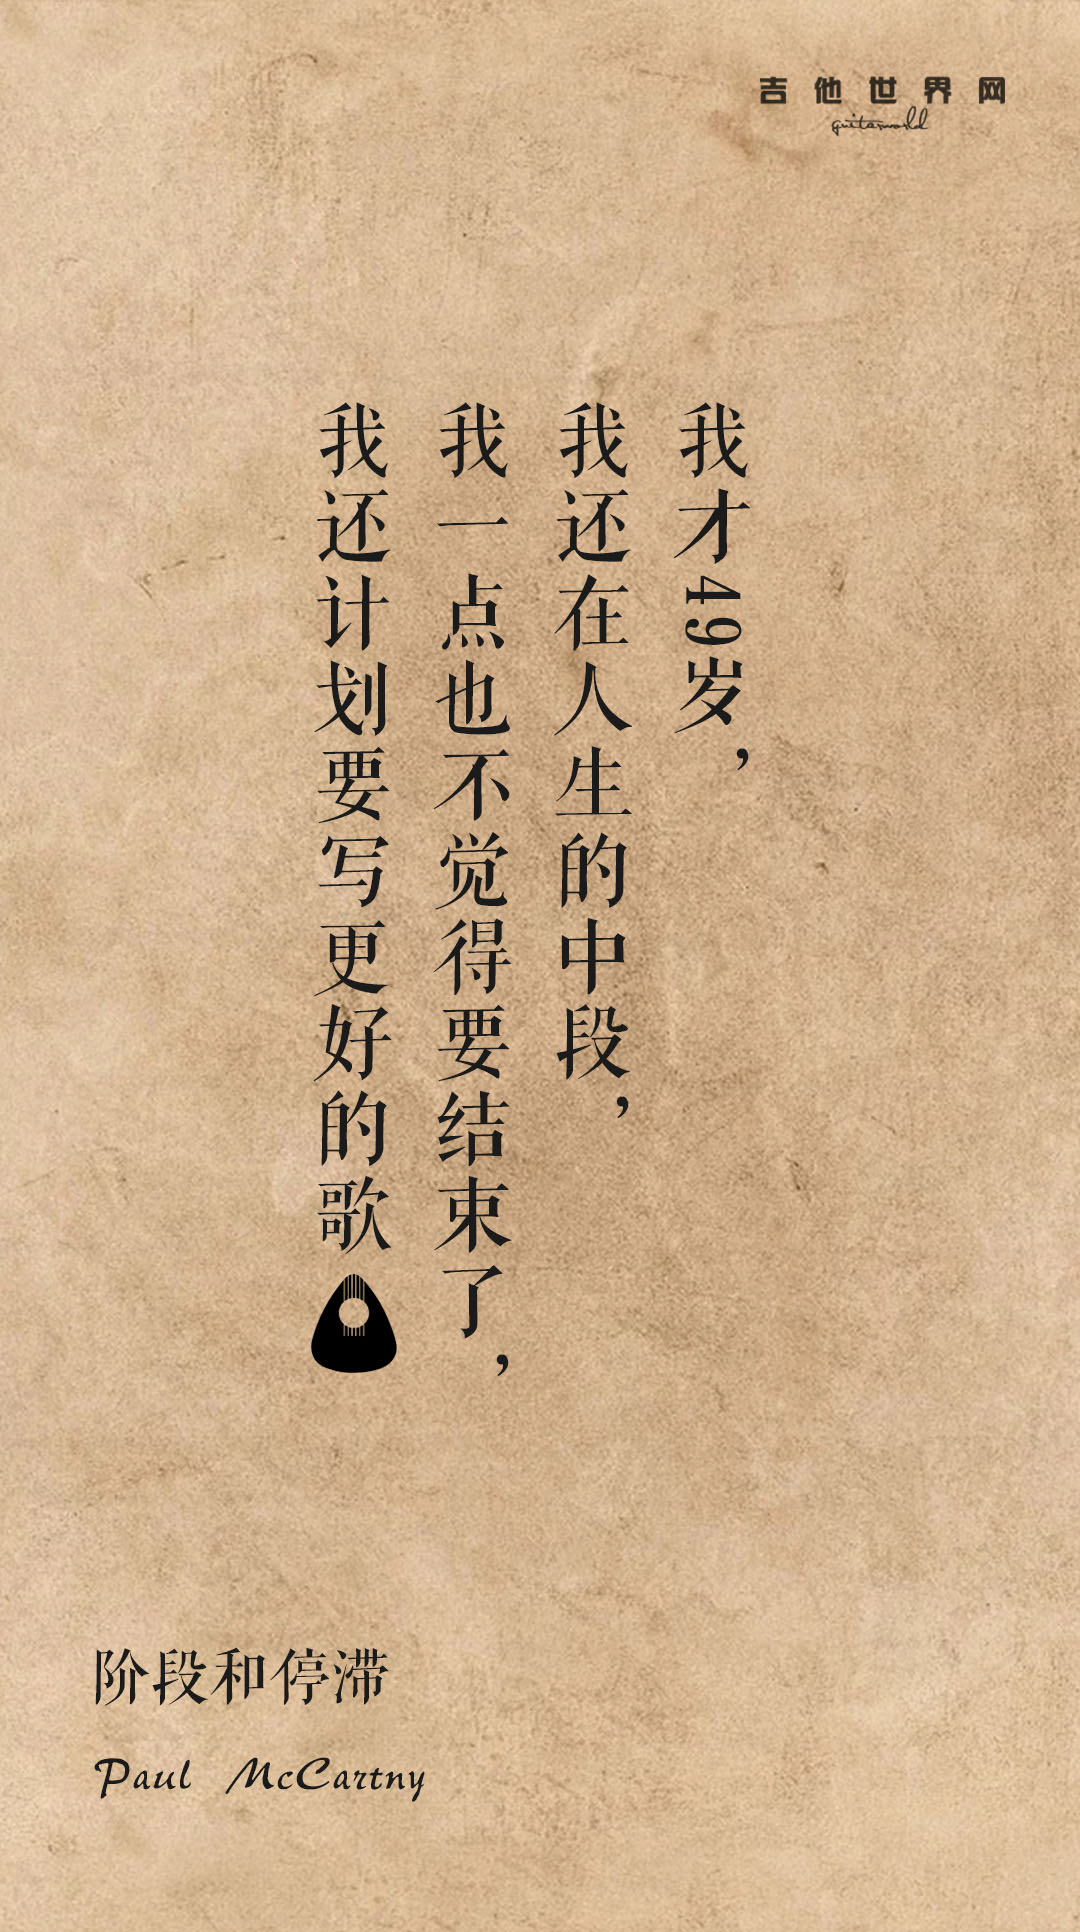 吉他世界网
guitarworld
我才49岁，
我还在人生的中段，
我一点也不觉得要结束了，
我还计划要写更好的歌
阶段和停滞
Paul McCartny